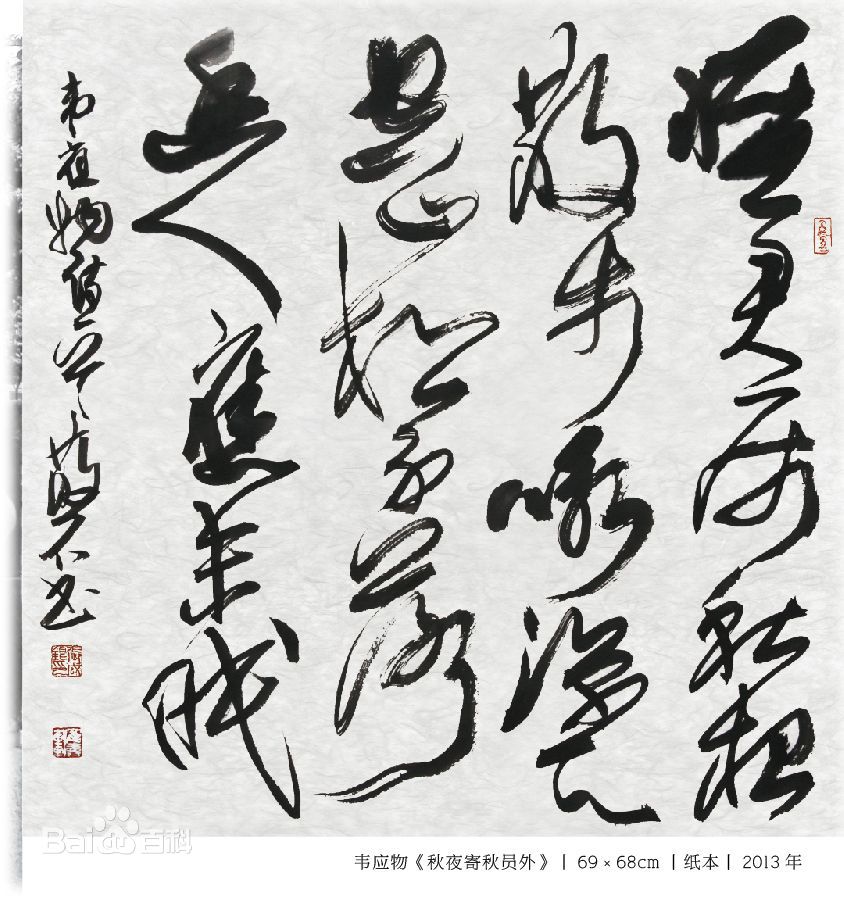 懷君属秋夜
散步咏涼天
空山松子落
幽人應未眠
韦應物詩
书
Bai 百科
韦应物《秋夜寄秋员外》丨 69×68cm 丨纸本丨 2013 年